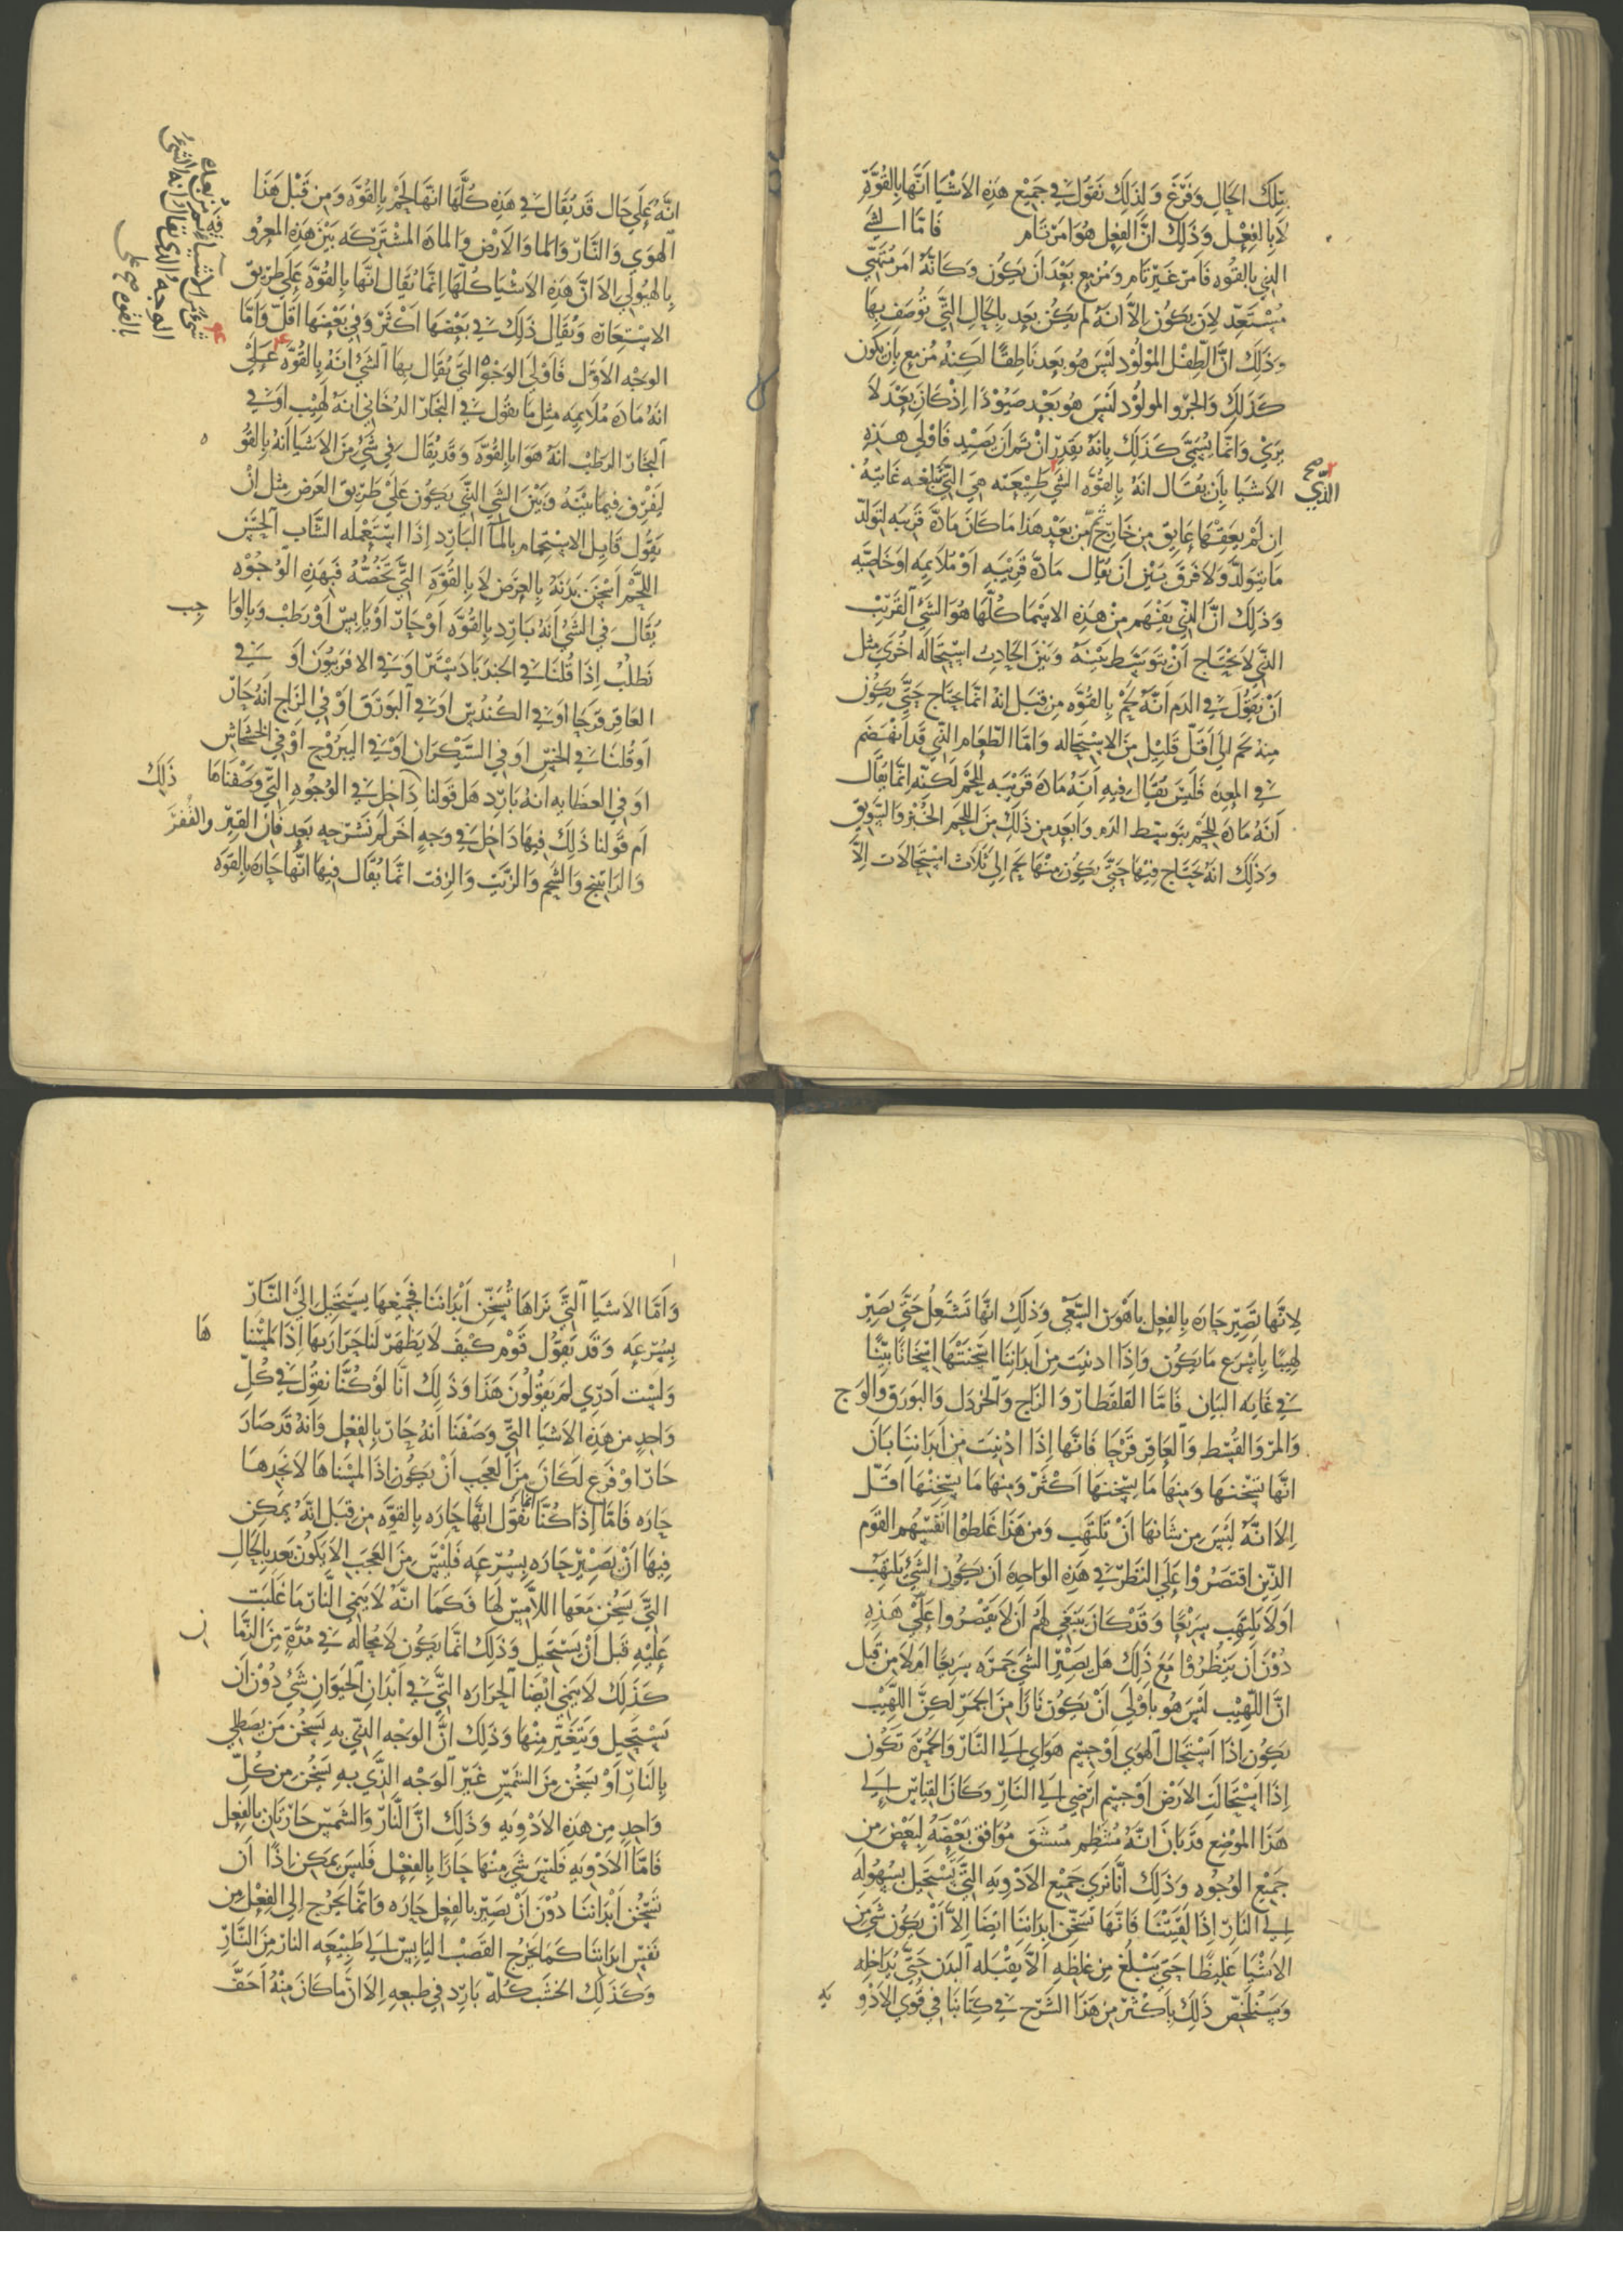 تِلكَ الحَالِ وَفَرَّغَ وَلِذَلِكَ نَقُولُ في جَمِيْعِ هَذِهِ الاَشْيَا اَنَّهَا بِالقُوَّةِ
لَا بِالفِعْلِ وَذَلِكَ انَّ الفِعلِ هُوَ امَرٌ تَام فَامَّا الشي
الذي بالقُوه فَامرٌ غَيْر تَام وَمُزمِع بَعْدَ اَن يَكُون وَكَانَّهُ امر مُتَهَيّي
مُسْتَعِدّ لِاَن يَكُون اِلاَّ انَهُ لَم يَكُن بَعد بِالحَالِ التي تُوصَف بهَا
وَذَلِكَ انَّ الطِفْل المَوْلُوْد لَيْسَ هُو بَعد نَاطِقًا لَكِنهُ مُزمِع بِاَن يَكُون
كَذَلِكَ وَالجَرْو المولُوْد لَيْسَ هُو بَعْد صَيُوْدًا اِذْ كَانَ بَعْدُ لاَ
يَرَي وَانّمَا يُسَمَّي كَذَلِكَ بِانَهُ يَقْدِر انْ تم اَن يَصَيْد فَاوْلي هَذِهِ
الاَشيَا بِاَن يُقَال انَهُ بِالقُوَّه الشَي الذي طَبِيْعَته هِيَ التّي تَبلغ به غَايتهُ
اِن لَمْ يَعقهَا عَايق مِن خَارِج ثُمَّ مِن بَعْدِ هَذَا مَا كَانَ مَادَّه قَرِيبَه لتَولّد
مَا يَتَولّد وَلاَ فَرقَ بَيْنَ اَنْ يُقَال مَادَّه قَرِيْبَه اَوْ مُلاَيمِه اوخَاصِّيَّه
وَذَلِكَ انَّ الذّي يَفْهَم مِنْ هَذِهِ الاسْمَا كُلّهَا هُوَ الشَي القَرِيْب
الذّي لاَ يَحْتَاج اَنْ يَتَوسَّط بَيْنَهُ وَبَيْنَ الحَادِث اسْتِحَالَه اخُرَي مِثل
اَنْ نَقُولَ في الدَم انَّهُ لَحْم بِالقُوَّه مِن قبَل انهُ انَمَا يَحتَاج حَتّي يَكُون
مِنهُ لَحْم الَي اَقَلّ قَلِيْل مِنَ الاستِحَاله وَامَّا الطّعَام الذّي قَد انْهَضَم
في المَعِدَه فَلَيسَ يُقَال فِيهِ اَنَّهُ مَادَه قَرِيْبَه لِلَّحْم لَكِنَّه اِنّمَا يُقَال
اَنَّهُ مَادَه لِلَّحْم بِتَوسّط الدَم وَابعَد مِن ذَلِكَ مِنَ اللّحِم الخُبْز وَالسَّوِيق
وَذَلِكَ انَهُ يَحْتَاج فِيْهَا حَتَّي يَكُون مِنْهَا لَحم اِلَي ثَلاَث استِحَالاَت اِلاَّ
الذي صح
انَّهُ عَلي حَال قَد يُقَال في هَذِه كُلّهَا انَهَا لَحْم بِالقُوَّه وَمِن قَبْلِ هَذَا
الهَوَي وَالنَّار وَالمَا وَالاَرْض وَالمادَه المشْتَرِكَه بَيْنَ هَذِهِ المَعرُو فه
بِالهيُولَي اِلاَ انَّ هَذِهِ الاَشْيَا كُلّهَا اِنّمَا يُقَال انَّها بِالقُوَّه عَلَي طَرِيق
الاسْتِعَارَه وَيُقَال ذَلِكَ في بَعْضهَا اكْثَر وَفي بَعْضِهَا اَقَلّ وَامَّا
الوَجْه الاَوّل فَاوْلَي الوجُوْه التّي يُقَال بِهَا الشَي انَهُ بِالقُوَّه عَلَيْ
انَهُ مَادَه مُلاَيمِه مِثل مَا نقُول في البَخَار الدُخَاني انَهُ لَهِيْب اَوْ في
البخَار الرَطبْ انَهُ هَوَا بالقُوَّه وَقَد يُقَال في شَيْ مِن الاَشيَا انَهُ بِالقُو ه
لِيَفْرق فيمَا بَيْنَهُ وَبَيْنَ الشَي الذّي يَكُون عَلَيْ طَرِيق العَرَض مِثل اَنْ
يَقُول قَايل الاستِحمام بِالمَا البَارِد اِذَا اسْتَعْمله الشَاب الحسَن
اللّحْم اَسْخَن بَدَنَهُ بِالعَرَض لاَ بِالقُوَّه التّي تَخُصّهُ فَبِهَذِهِ الوُجُوْه
يُقَال في الشَيْ اَنّهُ بَارِد بِالقُوَّه اَوْ حَارّ اَوْ يَابِسْ اَوْ رَطبْ وَبِالوَا جب
نَطلُبْ اِذَا قُلنَا في الجندَبَادستَر اوْ في الافرَبيُون اَوْ في
العَاقِر قَرحَا اوْ في الكُنْدُس اَوْ في البَورَق اَوْ في الزَاج انَهُ حَارّ
اَوْ قُلنَا في الخَسّ اوَ في السَّيْكرَان اَوْ في اليبرُوح اَوْ في الخشْخَاش
اَوْ في العظَايه انَهُ بَارِد هَل قَولنَا ذَلِكَ دَاخِل في الوُجُوْه التّي وَصَفْنَاهَا
اَم قَولنا ذَلِكَ فيهَا دَاخِل في وَجهٍ اخَر لَم نَشْرَحهِ بَعد فَان القِير وَالقُفْر
وَالرَاتِينج وَالشّحِم وَالزَّيْت وَالزفت انَّمَا يُقَال فِيهَا انَّهَا حَارَه بِالقوَّه
لِاَنَّها تَصِيْر حَارَه بِالفِعل بِاَهْوَن السَّعْي وَذَلِكَ انَّهَا تَشتَعِل حَتَّي تصِيْر
لَهِيبًا بِاَسْرَع مَا يَكُون وَاِذَا ادنِيَت مِن اَبدَانِنَا اسْخَنَتْهَا اِسْخَانًا بَيّنًا
في غَايَه البَيَان فَامَّا القَلقَطَار وَالزاج وَالخردَل وَالبَورَق وَالوَج
وَالمرّ وَالقُسْط وَالعَاقِر قَرْحَا فَانَّهَا اِذَا ادْنِيَت مِن اَبدَانِنَا بَانَ
انَّهَا تسْخنهَا وَمِنهَا مَا يسْخنهَا اكَثَر وَمِنهَا مَا يسْخِنْهَا اقَلّ
اِلاَ انَّهُ لَيْسَ مِن شَانهَا اَنْ تَلتَهِب وَمِن هَذَا غَلطُوا انَفسَهُم القَوم
الذِّين اقتَصَرُوْا عَلَي النَظَر في هَذِهِ الوَاحِدَه اَن يَكُون الشَي يَلتَهِبْ
اَوْ لَا يَلتَهِب سَرِيْعًا وَقَد كَانَ يَنْبَغي لَهُم اَنْ لاَ يَقصْرُوا عَلَيْ هَذِهِ
دُوْنَ اَن يَنظُرُوْا مَعَ ذَلِكَ هَل يَصِيْر الشَي جَمرَه سَرِيعًا اَم لاَ مِن قَبل
انَّ اللّهِيْب لَيْسَ هُو بِاَوْلَي اَنْ يَكُون نَارًا مِنَ الجَمر لَكِنَّ اللَّهِيْب
يَكُون اِذَا اسْتَحَال الهَوَي اَوْ جِسْم هَوَاي اِلَي النَّار وَالجمرَة تَكُون
اِذَا اسْتَحَالَت الاَرْض اَوْ جِسْم اَرْضِي اِلَي النَارِ وَكَانَ القيَاس اِلَي
هَذَا المَوضِع قَد بَانَ انَّهُ مُنتَظِم مُتَّسَق مُوَافق بَعْضهُ لِبَعْضٍ مِن
جَمِيْع الوُجُوه وَذَلِكَ انَّا نَرَي جَمِيْع الاَدوِيَه التّي تَسْتَحِيل بِسُهُولَه
اِلَي النَارِ اِذَا لَقِيَتْنَا فَانَّهَا تُسَخِّن اَبدَانِنَا ايَضَا اِلاَّ اَنْ يَكُون شَيٌ مِن
الاَشْيَا غَلِيْظًا حَتّي يَبْلُغ مِن غلظهِ اَلاَّ يقْبَله البَدَن حَتّي يُدَاخِله
وَسَنُلخِّص ذَلِكَ بِاَكْثَر مِن هَذَا الشَّرح في كِتَابنَا في قُوَي الاَدْوِ يه
وَاَمّا الاَشيَا التَّي نَرَاهَا تُسَخِّن اَبْدَانِنَا فَجَمِيْعهَا يَسْتَحِيْل اِلَيْ النَّار
بِسُرْعَه وَقَد يَقُوْل قَوْم كَيْفَ لاَ يَظهَر لَنَا حَرَارَتهَا اِذَا لمَسْنَا هَا
وَلَسْت اَدرِي لمَ يَقُوْلُوْنَ هَذَا وَذَلِكَ انَّا لَوْ كُنَّا نقُول في كُلِّ
وَاحِدٍ مِن هَذِهِ الاَشيَا التّي وَصَفْنَا اَنّهُ حَارّ بِالفِعْل وَانَهُ قَد صَارَ
حَارّ اوْ فَرَغ لَكَانَ مِنَ العَجَب اَنْ يَكُون اذَا لمَسْنَاهَا لاَ نَجدهَا
حَارَه فَامَّا اِذَا كُنَّا انما نَقُوْل انَّهَا حَارَه بِالقوَّه مِن قِبَل انَّهُ يُمَكِن
فِيهَا اَنْ تَصِيْر حَارَه بِسُرْعَه فَلَيْسَ مِنَ العَجَب اَلاَ يَكُونُ بَعد بِالحَالِ
التّي يَسْخن مَعَهَا اللاَّمِس لَهَا فَكَمَا انَّهُ لاَ يَنمِي النَّار مَا غَلَبَت
عَلَيْهِ قَبل اَنْ يَسْتَحِيل وَذَلِكَ انّمَا يَكُون لاَ مُحَالَه في مُدّةٍ مِنَ الزّمَا ن
كَذَلِكَ لاَ يَنمِي ايَضَا الحَرَارَه التّي في اَبدَان الحَيَوَان شَيٌ دُوْنَ اَن
يَسْتَحِيل وَيَتَغَيَّر مِنْهَا وَذَلِكَ انَّ الوَجْه الذّي بِهِ يَسْخن مَن يَصطَلي
بِالنَارِ اَوْ يَسْخُن مِنَ الشَّمْس غَيْر الوَجْه الذّي بِهِ يَسْخُن مِن كُلّ
وَاحِدٍ مِن هَذِهِ الاَدْوِيَه وَذَلِك انَّ النَّار وَالشَّمس حَارّتَان بِالفعِل
فَامَّا الاَدْوِيَه فَلَيْسَ شَي مِنْهَا حَارًا بِالفِعْل فَلَيسَ يُمَكِن اذًا اَن
تسَخّن اَبْدَانِنَا دُوْنَ اَنْ تصِيْر بِالفِعل حَارَه وَانّمَا تَخْرُج اِلَي الفِعْل مِن
نَفْس ابدَانِنَا كَمَا يَخْرُج القَصَبْ اليَابِس اِلَي طَبِيْعَه النار مِنَ النَّار
وَكَذَلِكَ الخشَب كُلّه بَارِد في طبعِهِ اِلاَ انَّ مَا كَانَ مِنْهُ اَجَفّ